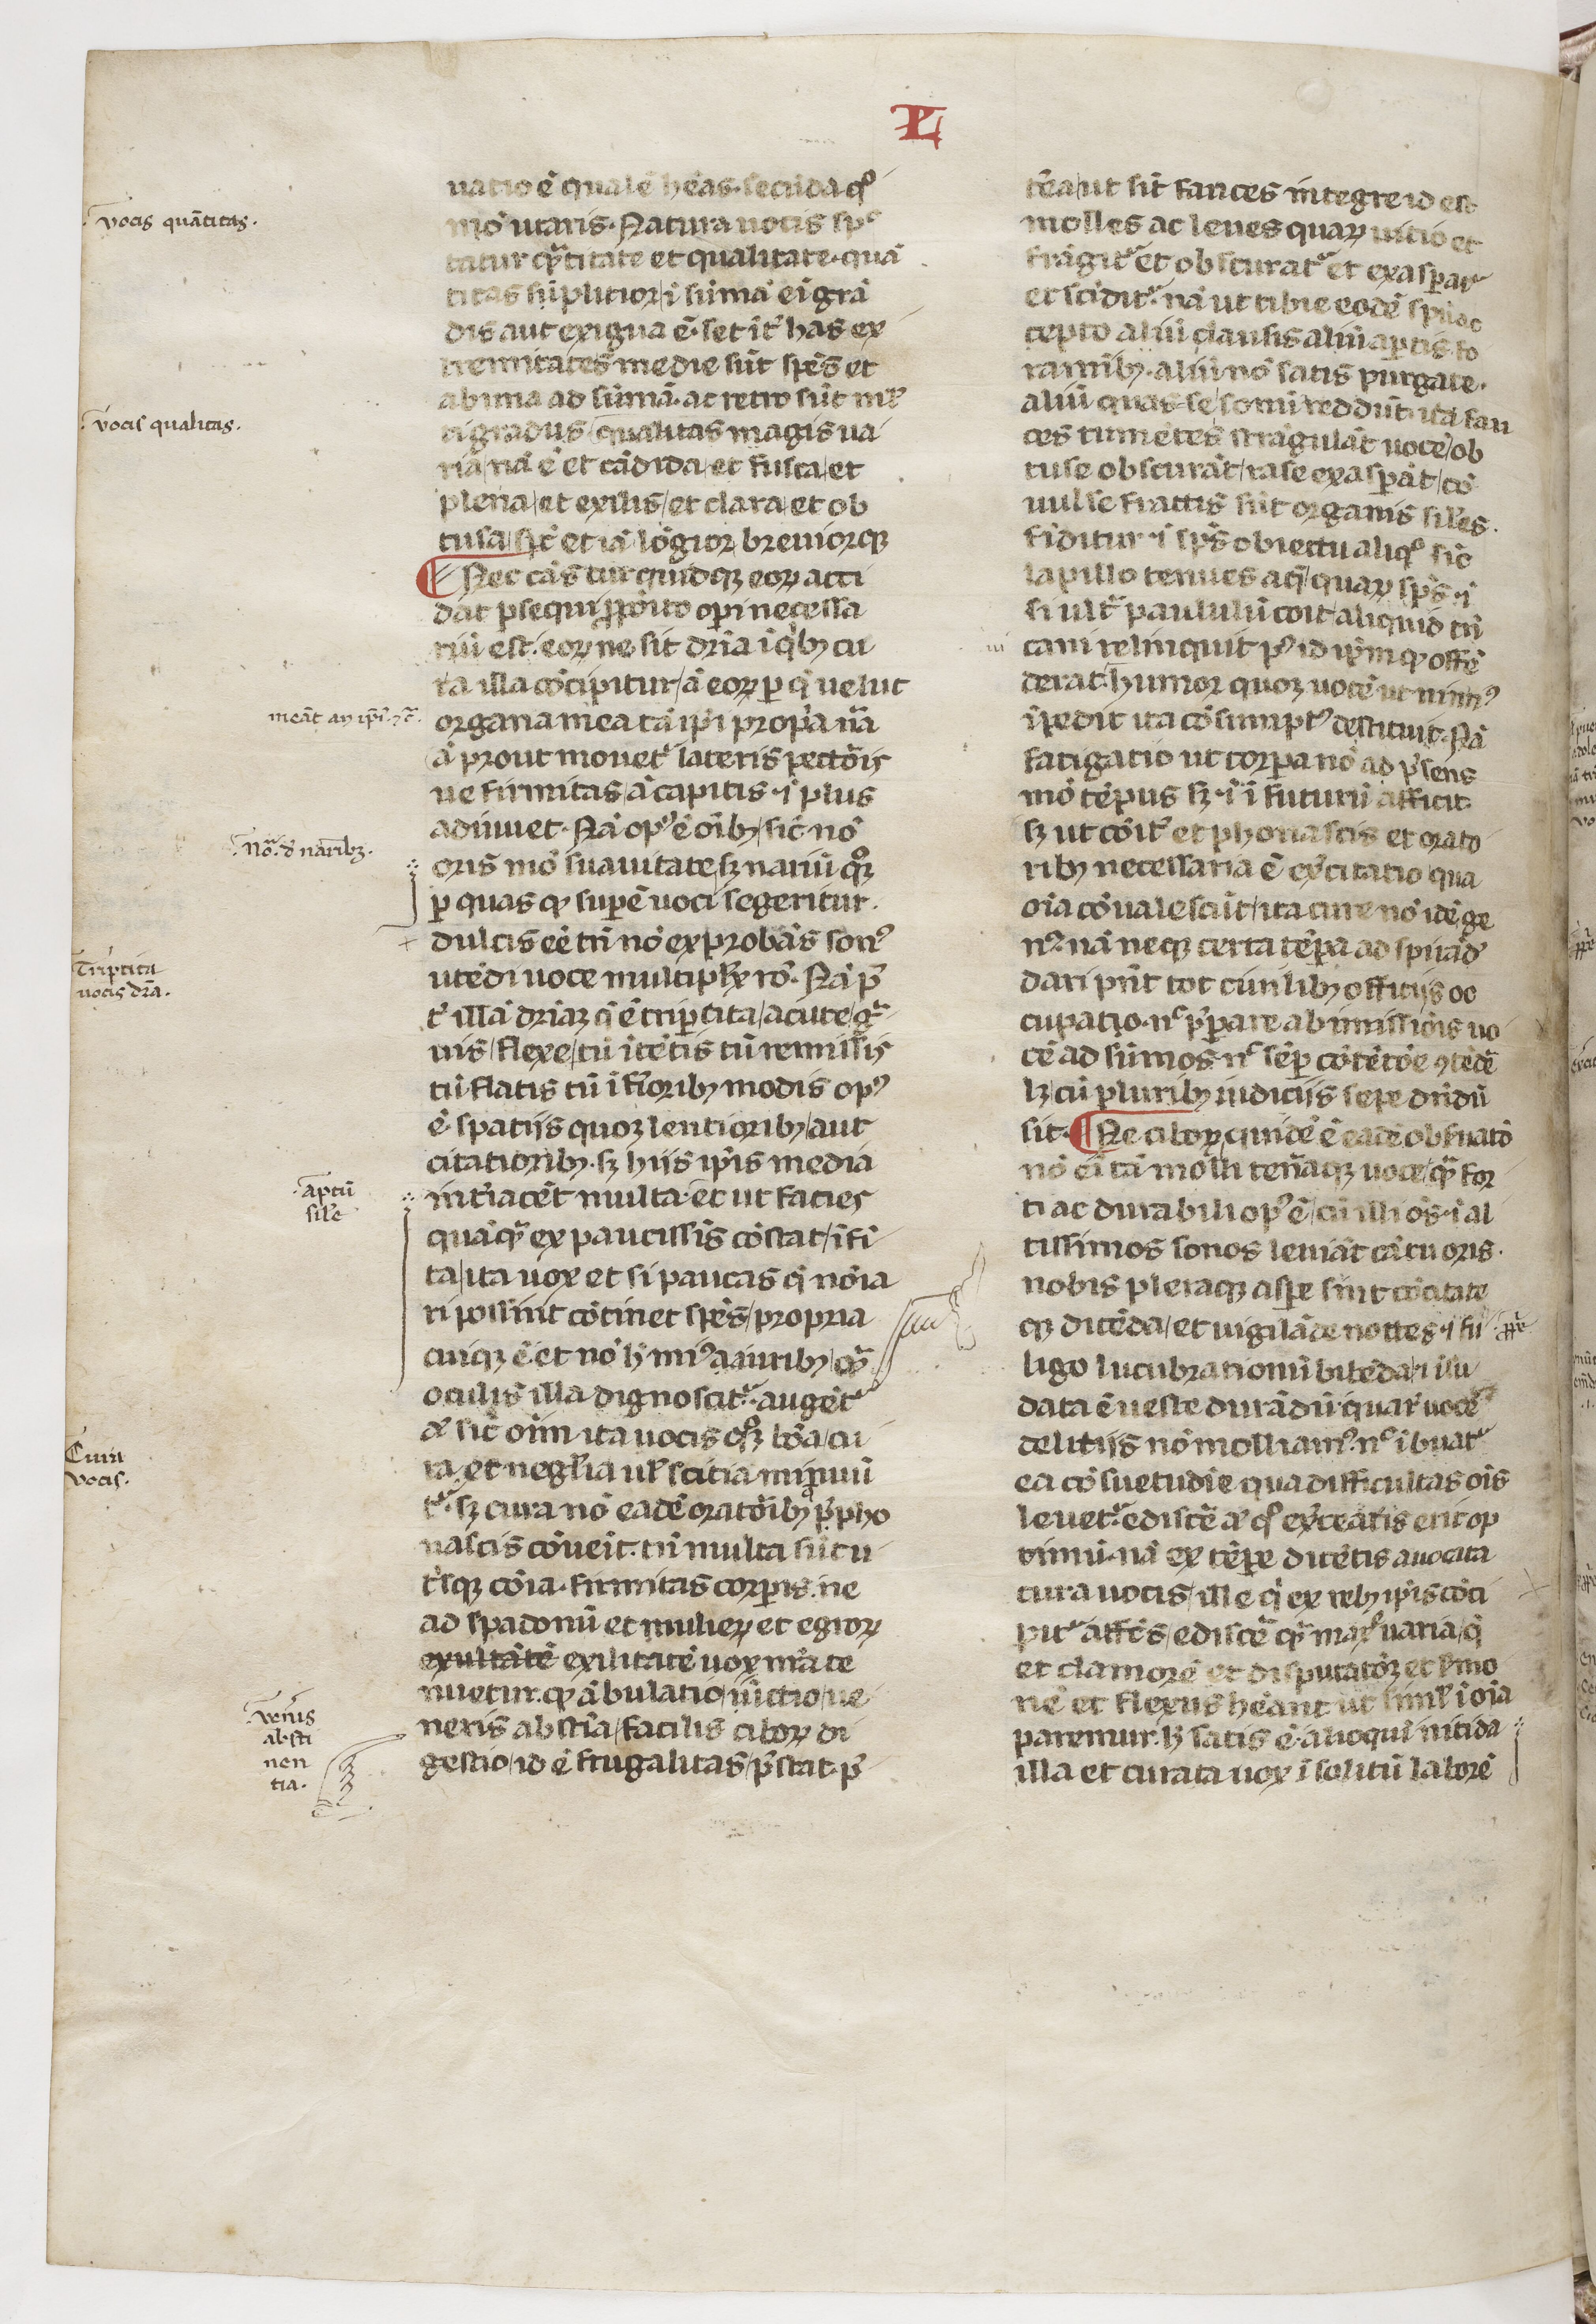 L
uatio ē qualē hēas. secūda qͦ
mō utaris. Natura uocis spͨ
tatur qͣ̄titate et qualitate. quā
titas sīplitior i sūma eī grā
dis aut exigua ē. set īt̾ has ex
tremitates medie sūt spēs et
ab ima ad sūmā. ac retro sūt ml̾
ti gradus qualitas magis ua
riā nā ē et cādida et fusca et
plena et exilis et clara et ob
tusa sīt̾ et iā lōgior breuiorqꝫ
Nec cās cur quidqꝫ eoꝝ acci
dāt ꝑsequi ꝓpōito oꝑi necessa
riū est. eoꝝ ne sit dr̄ia ī qͥbꝰ cu
ra illa cōcipitur ā eoꝝ ꝑ q̄ uelut
organa mea tā ip̄i propͥa nā
ā prout mouet᷑ lateris pectōris
ue firmitas ā capitis. ī plus
adiuuet. Nā opꝰ ē oībꝰ sīc nō
oris mō suauitate sꝫ nariū qͦꝫ
ꝑ quas qͦ suꝑē uoci segeritur.
dulcis eē tn̄ nō exprobās sonꝰ
utēdi uoce multiplex rō. Nā pͥ
t̾ illā dr̄iaꝫ q̄ ē triꝑtita acute gͣ
uis flexe tū ītētis tū remissis
tū flatis tū īfīoribꝰ modis opꝰ
ē. spatijs quoꝫ lentioribꝰ aut
citatioribꝰ. sꝫ hijs ip̄is media
int̾iacēt multa. et ut facies
quāqͣ̄ ex paucissīs cōstat īfi
ta ita uox et si paucas q̄ noīa
ri possint cōtinet spēs propria
cuiqꝫ ē. et nō h̄ miꝰ aauribꝰ qͣ̄
oculis illa dignoscit᷑. augēt᷑
aͤ sīc oīm ita uocis qͦꝫ bōa cu
ra et negl̾ia ul̾ scitia miꝑuū
t᷑. sꝫ cura nō eadē oratōibꝰ p̄pho
nascis cōueīt. tn̄ multa sūt u
t̾iqꝫ cōia. firmitas corꝑis. ne
ad spadonū et mulieꝝ et egroꝝ
exultātē exilitatē uox nr̄a te
nuetur. qͦ ābulatio ūctio ue
neris abstīa facilis ciboꝝ di
gestio id ē frugalitas p̄stat. p̄
tēa ut sīt fauces integre id est
molles ac leues quaꝝ uitio et
frāgit᷑ et obscurat᷑ et exasꝑat᷑
et scīdit᷑. nā ut tibie eodē spū ac
cepto aliū clausis aliū aꝑtis fo
raminibꝰ. aliū nō satis purgate.
aliū quas se sonū reddūt. ita fau
ces tumētes strāgulāt uocē ob
tuse obscurāt rase exasꝑāt cō
uulse fractis sūt organis siles.
fīditur. ī spūs obiectu aliqͦ sīc
lapillo tenues aq̄ quaꝝ spūs. ī
si ultͣ paululū coit aliquid tn̄
caui relinquit pꝰ id ip̄m qͦ offē
derat. humor quoꝫ uocē ut nimiꝰ
īpedit ita cōsumptꝰ destituit. Nā
fatigatio ut corꝑa nō ad p̄sens
mō tēpus sꝫ. ī ī futurū afficit.
sꝫ ut cōit̾ et phonascis et orato
ribꝰ necessaria ē ex̾citatio qua
oīa cōualescūt ita cure nō idē ge
nꝰ. nā neqꝫ certa tēꝑa ad spūād̾
dari pn̄t tot ciuilibꝰ officijs oc
cupatio. nͨ p̄parare ab imissiōis uo
cē ad sūmos nͨ sēꝑ cōtētōe ꝯtēdē
lꝫ cū pluribꝰ iudicijs sepe dn̄dū
sit. Ne ciboꝝ quidē ē eadē obſuatō
nō eī tā molli ten̾aqꝫ uoce qͣ̄ for
ti ac durabili opꝰ ē cū illi os. ī al
tissimos sonos leniāt cātu oris.
nobis pleraqꝫ asꝑe sint cōcitate
qꝫ dicēda et uigilāde noctes. ī fu
ligo lucubrationū bibēda ī ī su
data ē ueste durādū. quar̾ uocē
delitijs nō molliamꝰ. nͨ ībuat᷑
ea cōsuetudīe qua difficultas oīs
leuet᷑. ediscē aͤ qͦ ex̾ceātis erit op
timū. nā ex tēpe dicētis auocita
tura uocis ille q̄ ex rebꝰ ip̄is cōci
pit᷑ affcūs ediscē qͣ̄ maxͤ uaria q̄
et clamorē et disputatōꝫ et smo
nē et flexus hēant ut simͥl ī oīa
paremur. h̄ satis ē. alioqui nitida
illa et curata uox īsolitū laborē
vocis quātitas.
vocis qualitas.
meāt aīp̄i. ꝛͨ.
Nō. d̾ naribꝫ.
Triꝑtita
uocis dr̄ia.
aptū
sil̾e
Cura
vocis.
ven̾is
absti
nen
tia.